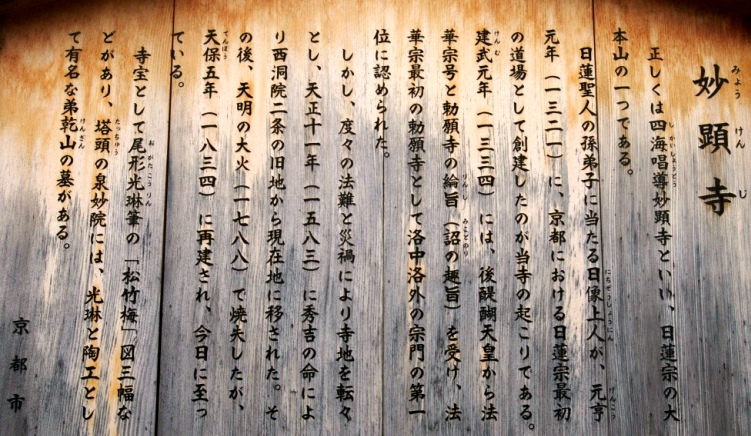 妙顕寺
正しくは四海唱導妙顕寺といい、日蓮宗の大
本山の一つである。
日蓮聖人の孫弟子に当たる日像上人が、元亨
元年（一三二一）に、京都における日蓮宗最初
の道場として創建したのが当寺の起こりである。
建武元年（一三三四）には、後醍醐天皇から法
華宗号と勅願寺の綸旨（詔の趣旨）を受け、法
華宗最初の勅願寺として洛中洛外の宗門の第一
位に認められた。
しかし、度々の法難と災禍により寺地を転々
とし、天正十一年（一五八三）に秀吉の命によ
り西洞院二条の旧地から現在地に移された。そ
の後、天明の大火（一七八八）で焼失したが、
天保五年（一八三四）に再建され、今日に至っ
ている。
寺宝として尾形光琳筆の「松竹梅」図三幅な
どがあり、塔頭の泉妙院には、光琳と陶工とし
て有名な弟乾山の墓がある。
京都市